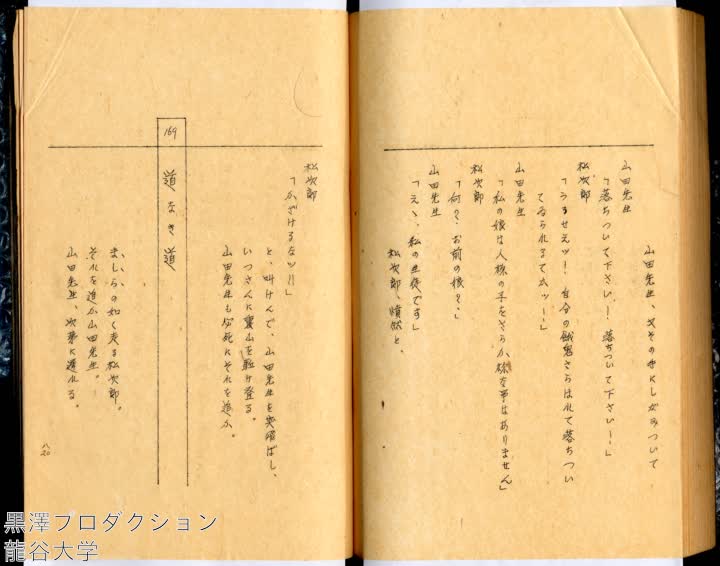 山田先生、又その手にしがみついて
山田先生
「落ちついて下さい！ 落ちついて下さい！」
松次郎
「うるせえッ！ 自分の餓鬼さらはれて落ちつい
てゐられるてムッ！」
山田先生
「私の娘は人様の子をさらふ様な事はありません」
松次郎
「何？ お前の娘？」
山田先生
「えゝ、私の生徒です」
松次郎、憤然と、
松次郎
「ふざけるなッ!!」
と、叫けんで、山田先生を突飛ばし、
いつさんに裏山を駈け登る。
山田先生も必死にそれを追ふ。
169
道なき道
ましらの如く走る松次郎。
それを追ふ山田先生。
山田先生、次第に遅れる。
八20
黒澤プロダクション
龍谷大学